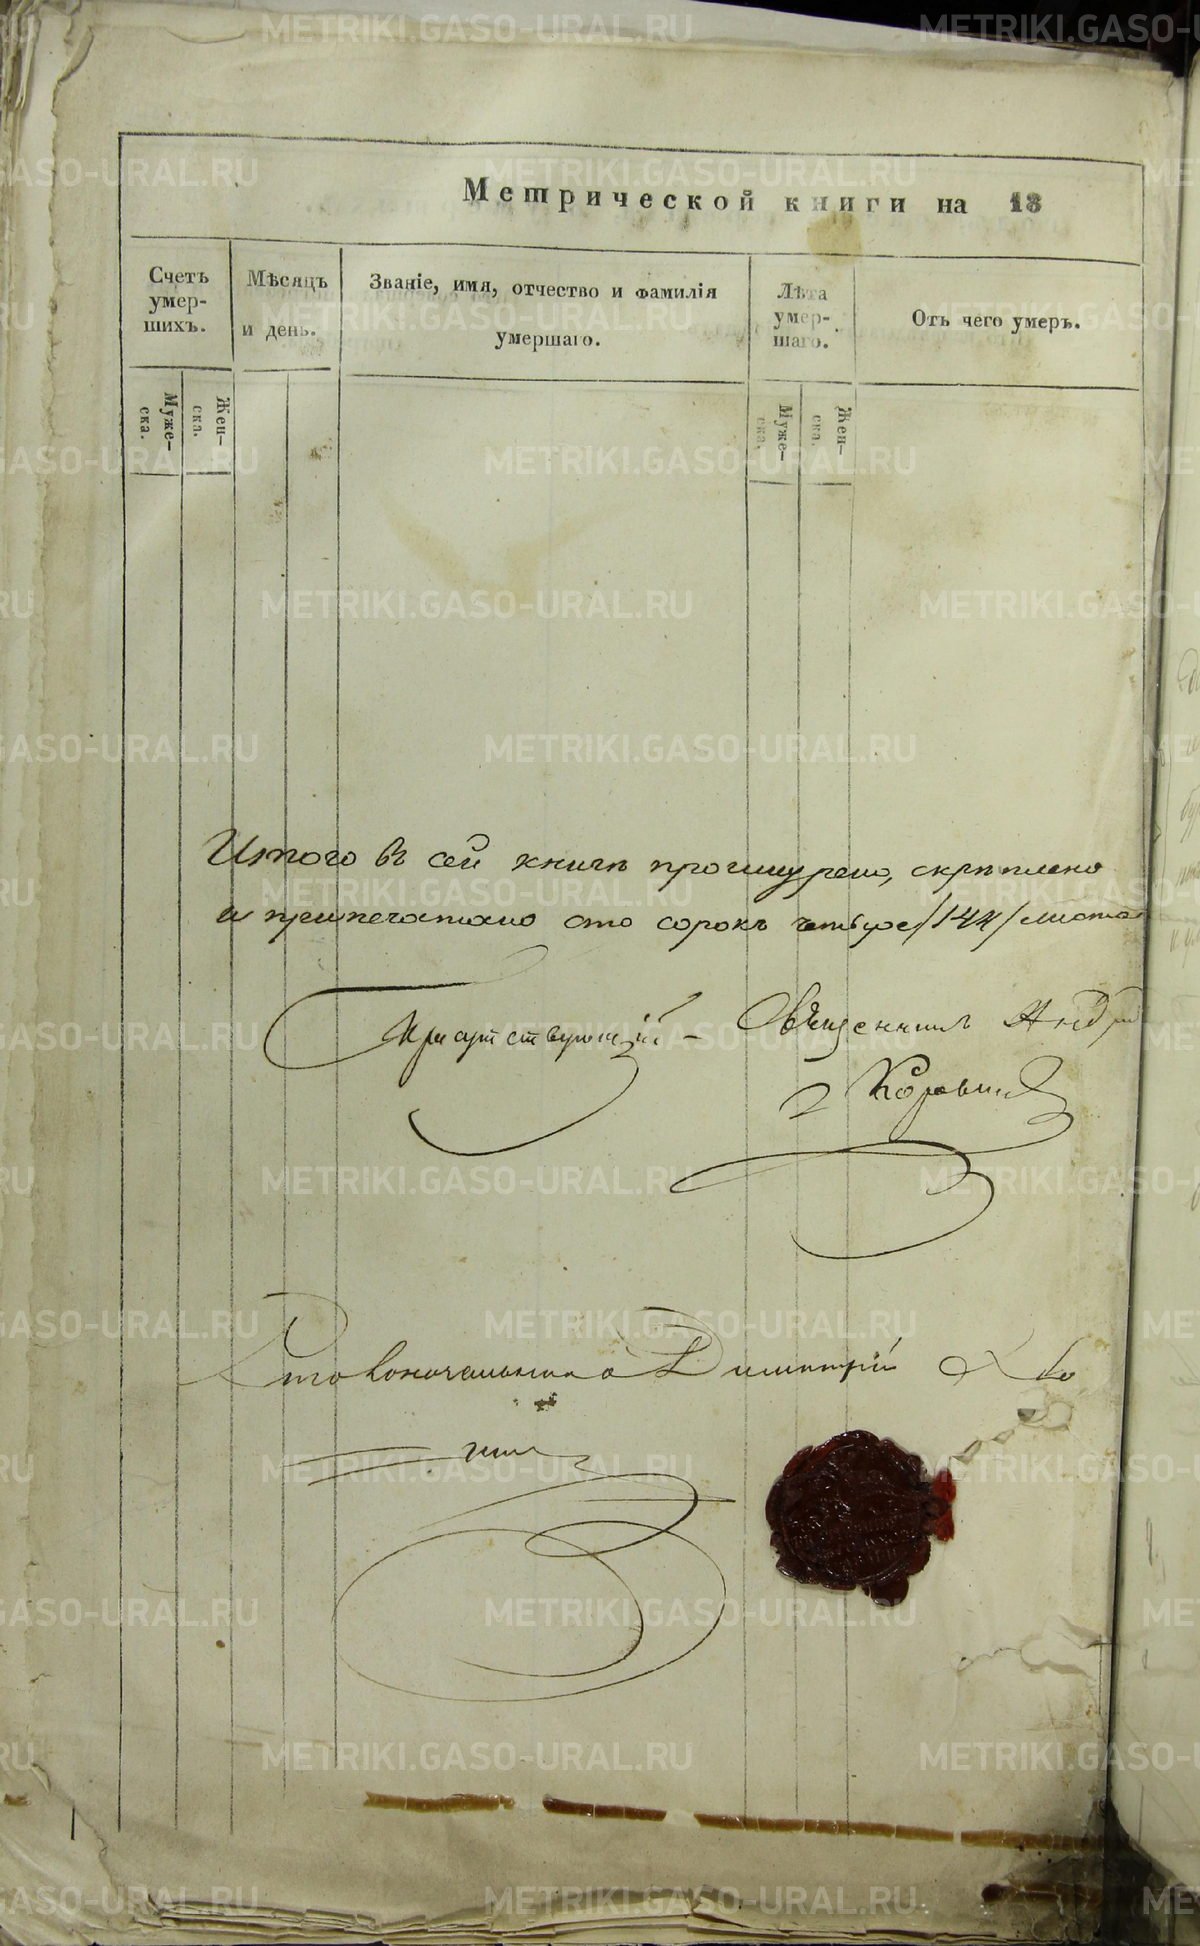 Метрической книги на 18
Счетъ умер-шихъ.
Мѣсяцъ и день.
Званіе, имя, отчество и фамилія умершаго.
Лѣта умер-шаго.
Отъ чего умеръ.
Муже-ска.
Жен-ска.
Муже-ска.
Жен-ска.
Итого въ сей книгѣ прошнурено, скрѣплено
и припечатано сто сорокъ четыре /144/ листа
Присутствующій – Священникъ Андр
Коровинъ
Столоначальникъ Димитрій
METRIKI.GASO-URAL.RU